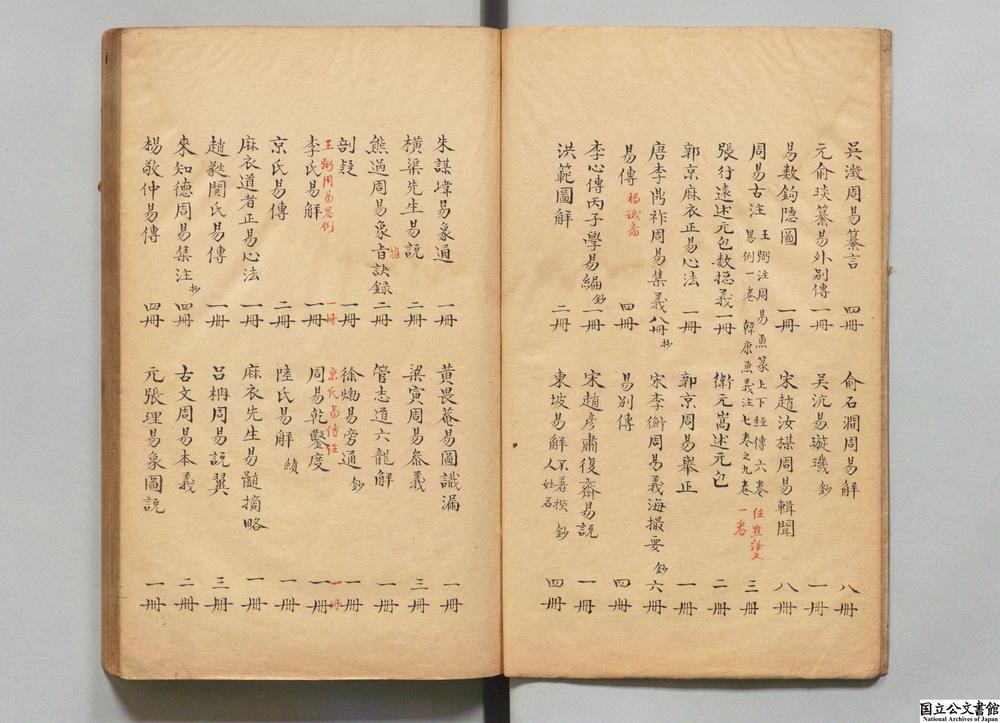 吳澂周易纂言 四冊 俞石澗周易解 八冊
元俞琰纂易外別傳 一冊 吳沆易璇璣 鈔 一冊
易数鉤隱圖 一冊 宋趙汝楳周易輯聞 八冊
周易古注 王弼注周易兼篆上下經傳六卷 畧例一卷 韓康 義注七卷之九卷 三冊
一卷
張行逺述元包数揔義 一冊 衛元嵩述元包 二冊
郭京麻衣正易心法 一冊 郭京周易舉正 一冊
唐李鼎祚周易集義 八冊 抄 宋李衡周易義海撮要 鈔 六冊
易傳 楊誠齋 四冊 易別傳 四冊
李心傳丙子學易編 鈔 一冊 宋趙彦肅復齋易説 一冊
洪範圖解 二冊 東坡易解 不著撰人姓名 鈔 四冊
朱謀㙔易象通 一冊 黃畏菴易圖識漏 一冊
橫渠先生易説 二冊 梁寅周易叅義 三冊
熊過周易象旨訣録 二冊 管志道六龍解 一冊
指
剖疑 一冊 徐㷆易旁通 鈔 一冊
王弼周易畧例 一冊 京氏易傳經 一冊
李氏易解 一冊 周易乾鑿度 一冊
京氏易傳 二冊 陸氏易解 續 一冊
麻衣道者正易心法 一冊 麻衣先生易髓摘略 一冊
趙蕤関氏易傳 一冊 呂枏周易説翼 三冊
來知德周易集注 抄 四冊 古文周易本義 二冊
楊敬仲易傳 四冊 元張理易象圖説 一冊
国立公文書館
National Archives of Japan